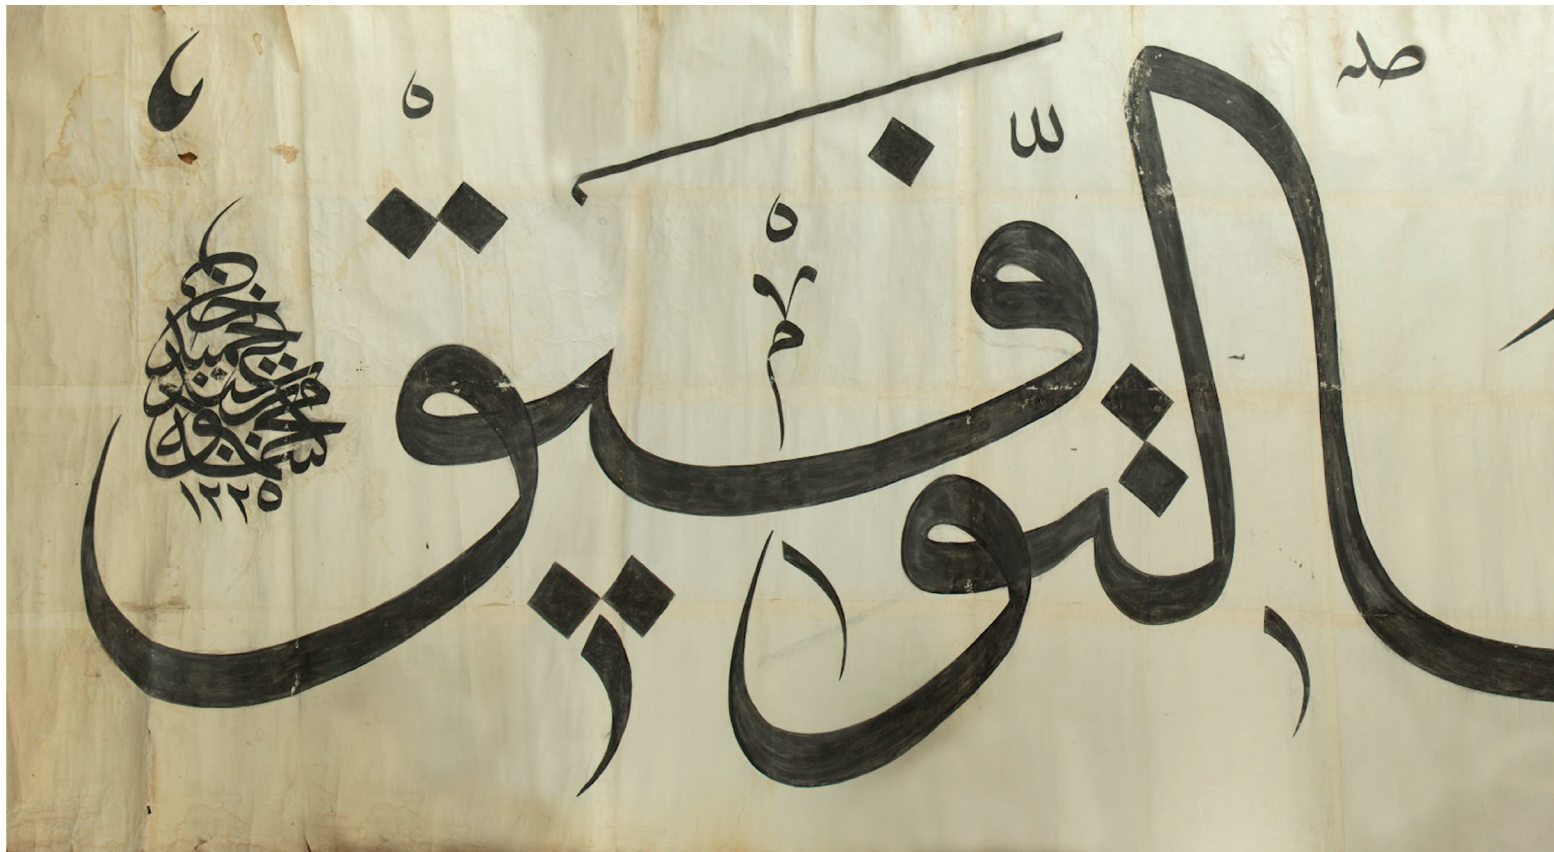 التوفيق
محمود بن عبد الحميد خان
١٢٢٥